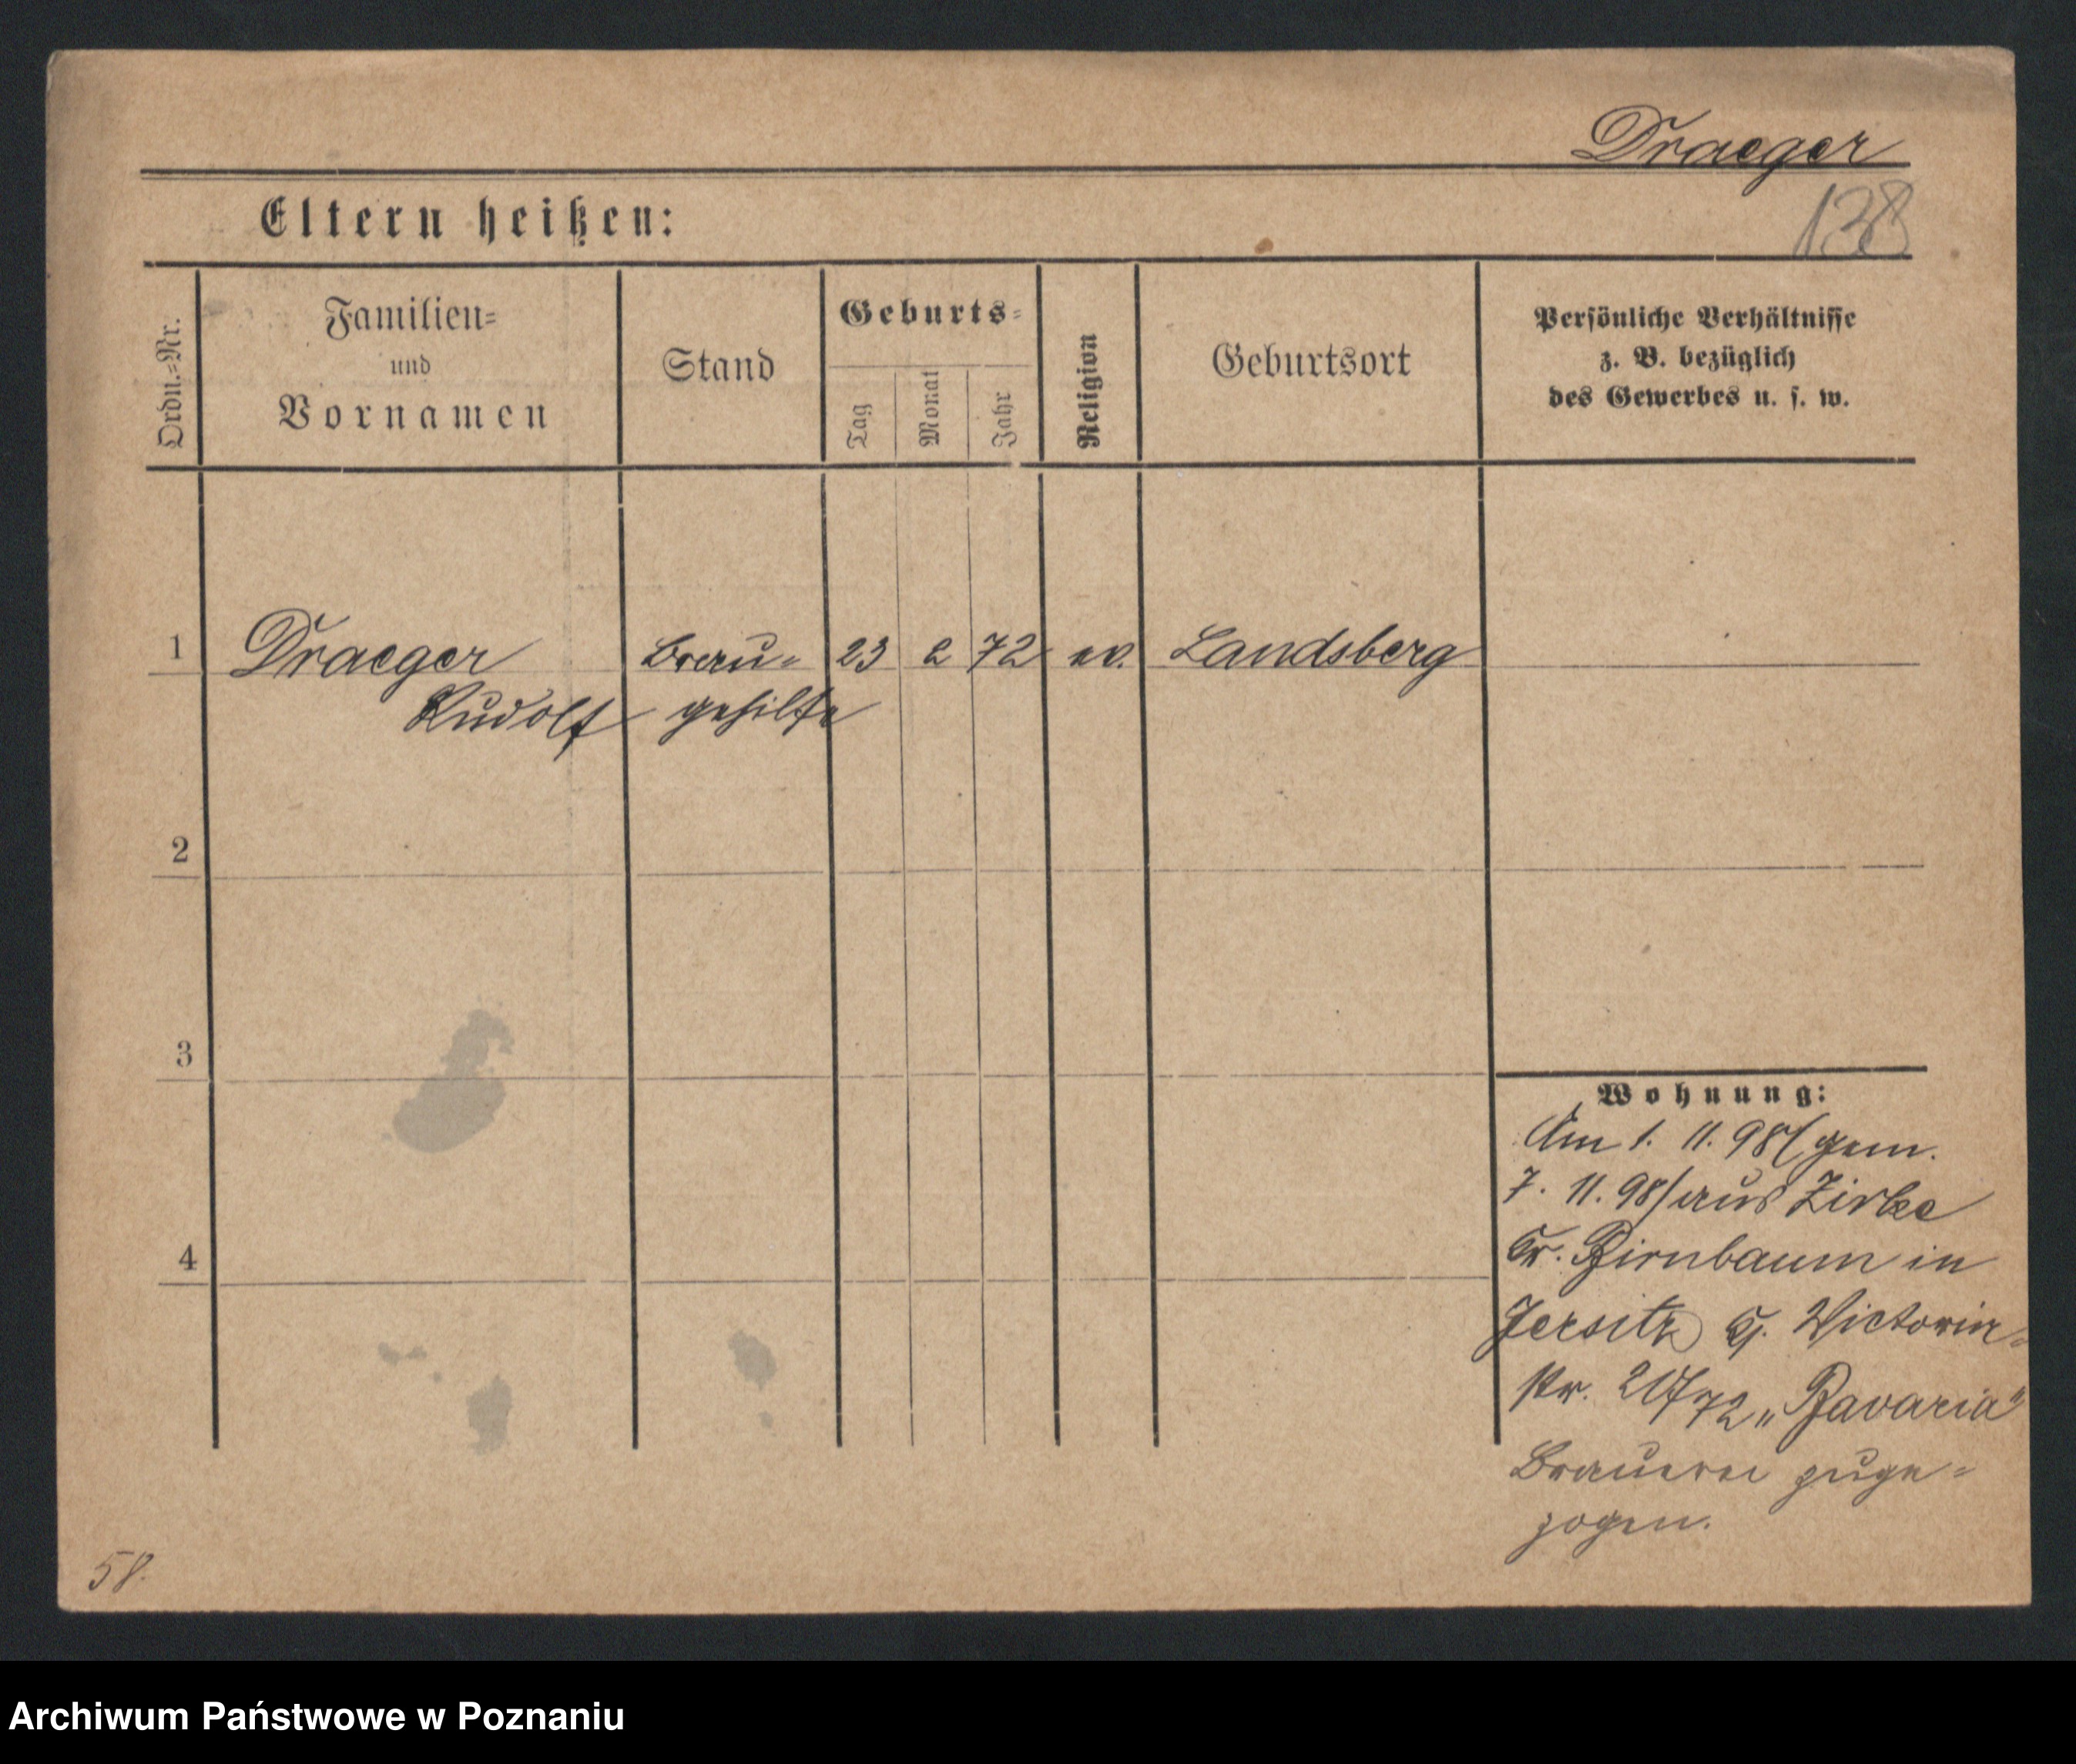 Draeger
138
Eltern heißen:
Ordn.-Nr.
Familien-
und
Vornamen
Stand
Geburts-
Tag
Monat
Jahr
Religion
Geburtsort
Persönliche Verhältnisse
z. B. bezüglich
des Gewerbes u. s. w.
1 Draeger Brau- 23 2 72 ev. Landsberg
Rudolf gehilfe
2
3
4
Wohnung:
Am 1. 11. 98 (gem.
7. 11. 98) aus Zirke
Kr. Birnbaum in
Jersitz Victoria-
str. „Bavaria"
Brauerei zuge-
zogen.
58.
Archiwum Państwowe w Poznaniu